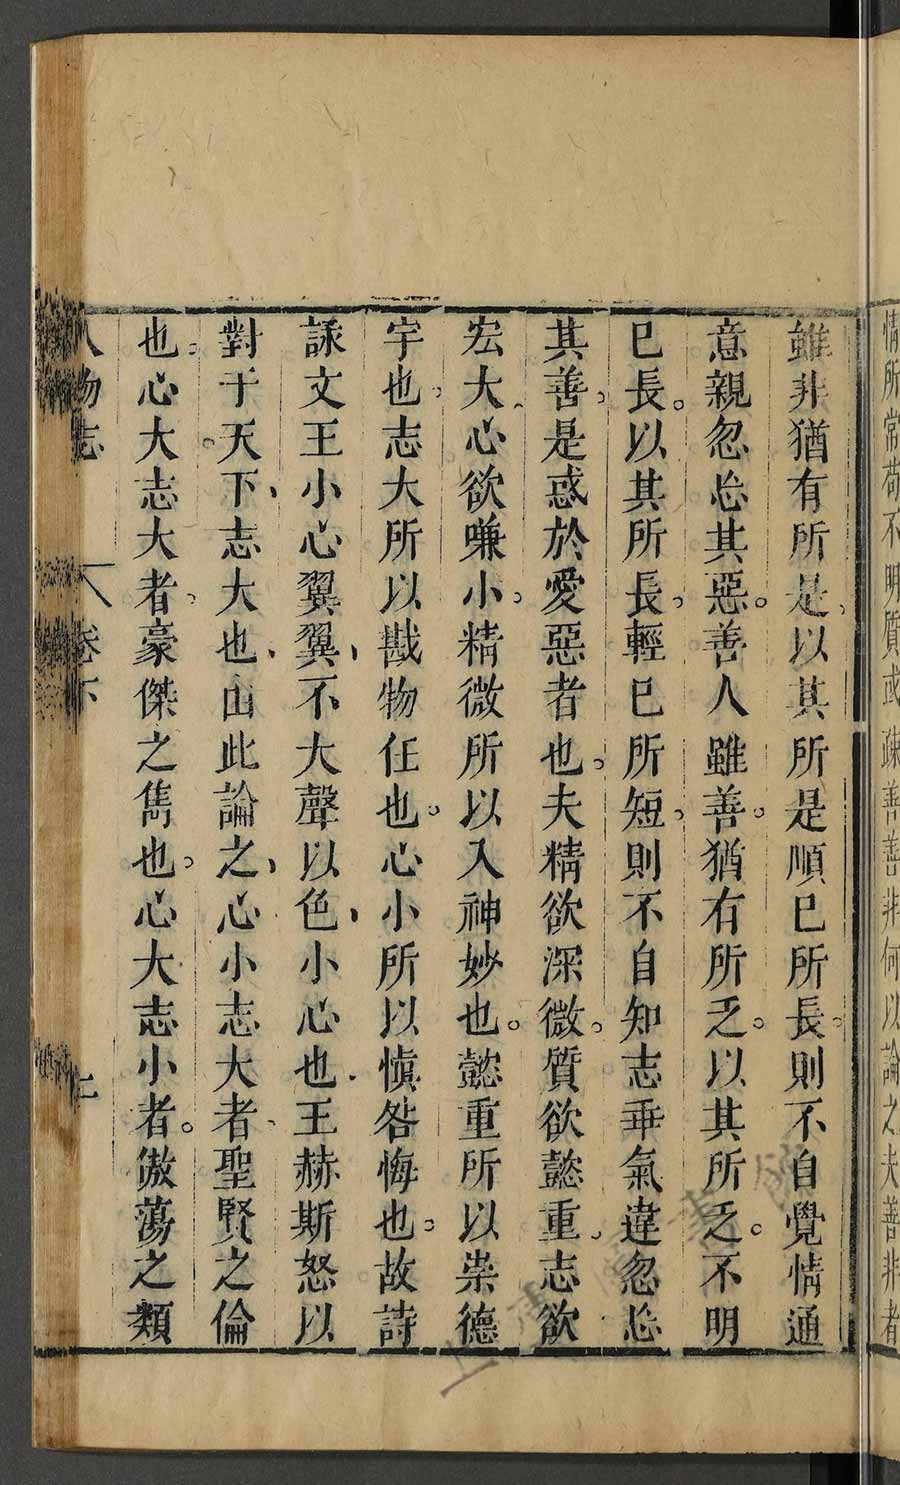 情所常苟不明質或疎善善非何以論之夫善非者
雖非猶有所是以其所是順已所長則不自覺情通
意親忽忘其惡善人雖善猶有所乏以其所乏不明
已長以其所長輕已所短則不自知志乖氣違忽忘
其善是惑於愛惡者也夫精欲深微質欲懿重志欲
宏大心欲嗛小精微所以入神妙也懿重所以崇德
宇也志大所以戡物任也心小所以慎咎悔也故詩
詠文王小心翼翼不大聲以色小心也王赫斯怒以
對于天下志大也由此論之心小志大者聖賢之倫
也心大志大者豪傑之雋也心大志小者傲蕩之類
人物志 卷下